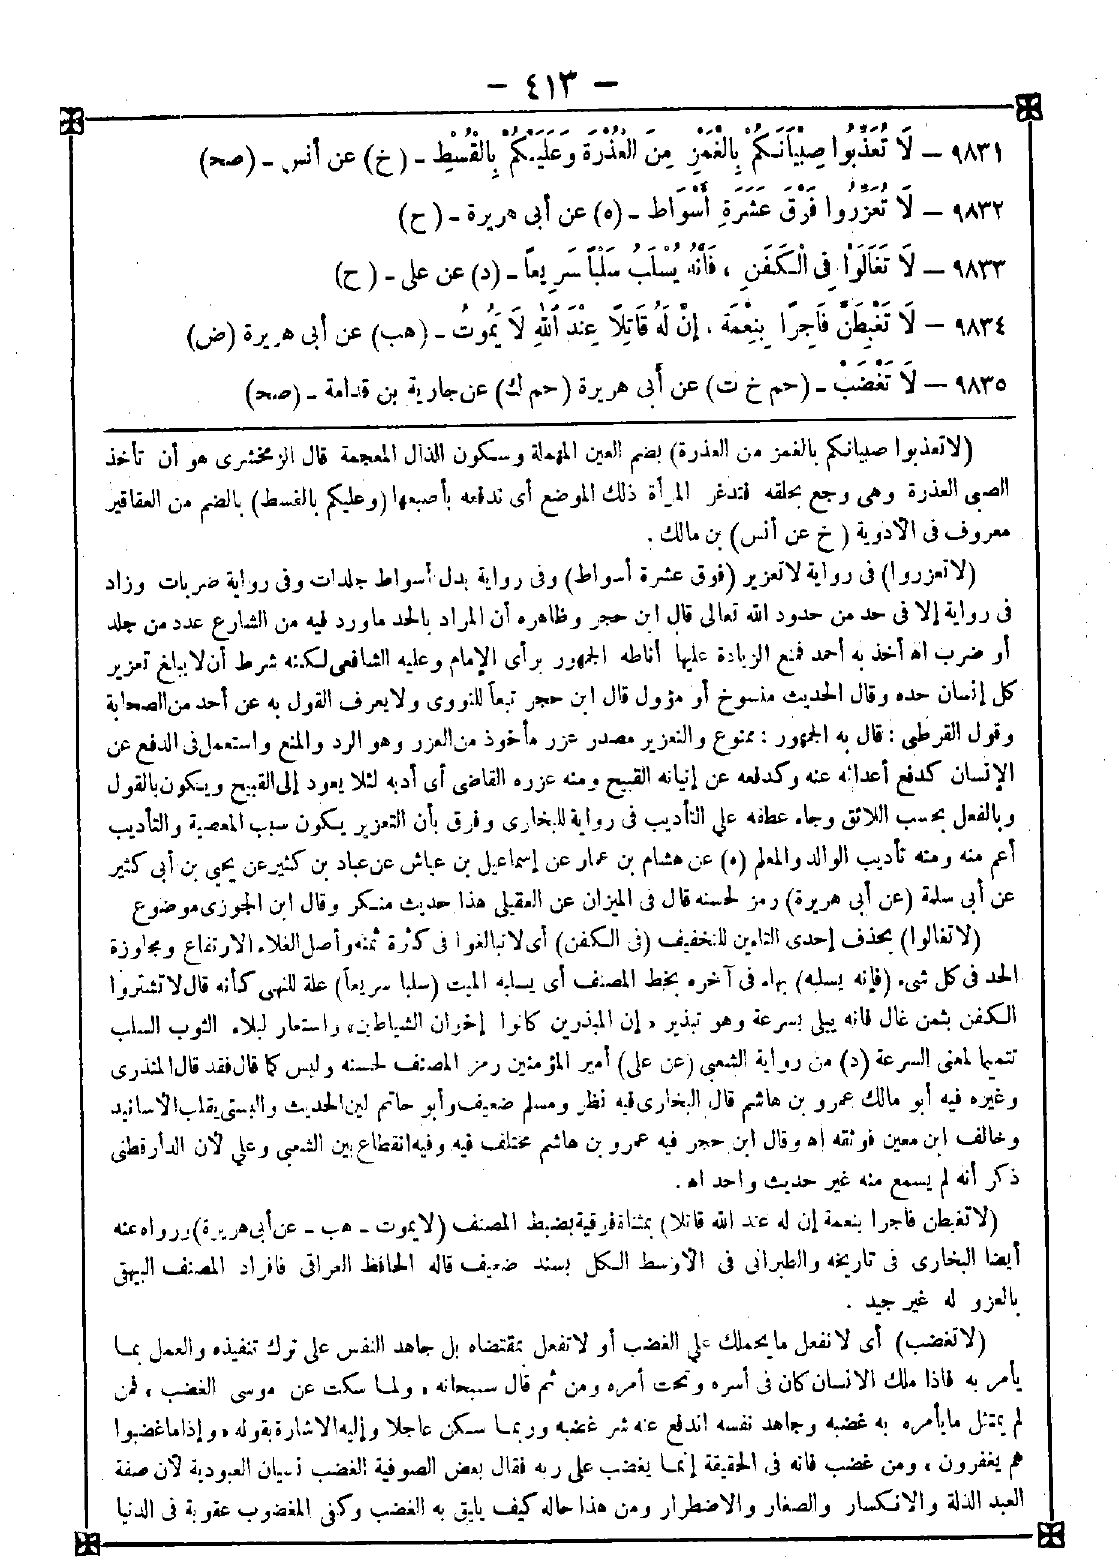 - ٤١٣ -
٩٨٣١ - لَا تُعَذِّبُوا صِبْيَانَكُمْ بِالْغَمْزِ مِنَ الْعُذْرَةِ وَعَلَيْكُمْ بِالْقُسْطِ - (خ) عن أنس - (صح)
٩٨٣٢ - لَا تُعَزِّرُوا فَوْقَ عَشَرَةِ أَسْوَاطٍ - (ه) عن أبى هريرة - (ح)
٩٨٣٣ - لَا تَغَالَوْا فِى الْكَفَنِ ، فَإِنَّهُ يُسْلَبُ سَلْباً سَرِيعاً - (د) عن على - (ح)
٩٨٣٤ - لَا تَغْبِطَنَّ فَاجِرًا بِنِعْمَةٍ ، إِنَّ لَهُ قَاتِلًا عِنْدَ اللّٰهِ لَا يَمُوتُ - (هب) عن أبى هريرة (ض)
٩٨٣٥ - لَا تَغْضَبْ - (حم خ ت) عن أبى هريرة (حم ك) عن جارية بن قدامة - (صح)
(لا تعذبوا صبيانكم بالغمز من العذرة) بضم العين المهملة وسكون الذال المعجمة قال الزمخشرى هو أن تأخذ
الصبى العذرة وهى وجع بحلقه فتدغر المرأة ذلك الموضع أى تدفعه بأصبعها (وعليكم بالقسط) بالضم من العقاقير
معروف فى الأدوية (خ عن أنس) بن مالك .
(لا تعزروا) فى رواية لا تعزير (فوق عشرة أسواط) وفى رواية بدل أسواط جلدات وفى رواية ضربات وزاد
فى رواية إلا فى حد من حدود الله تعالى قال ابن حجر وظاهره أن المراد بالحد ما ورد فيه من الشارع عدد من جلد
أو ضرب اه أخذ به أحمد فمنع الزيادة عليها أناطه الجمهور برأى الإمام وعليه الشافعى لكنه شرط أن لا يبلغ تعزير
كل إنسان حده وقال الحديث منسوخ أو مؤول قال ابن حجر تبعاً للنووى ولا يعرف القول به عن أحد من الصحابة
وقول القرطبى : قال به الجمهور : ممنوع والتعزير مصدر عزر مأخوذ من العزر وهو الرد والمنع واستعمل فى الدفع عن
الإنسان كدفع أعدائه عنه وكدفعه عن إتيانه القبيح ومنه عزره القاضى أى أدبه لئلا يعود إلى القبيح ويكون بالقول
وبالفعل بحسب اللائق وجاء عطفه على التأديب فى رواية للبخارى وفرق بأن التعزير يكون سبب المعصية والتأديب
أعم منه ومنه تأديب الوالد والمعلم (ه) عن هشام بن عمار عن إسماعيل بن عياش عن عباد بن كثير عن يحيى بن أبى كثير
عن أبى سلمة (عن أبى هريرة) رمز لحسنه قال فى الميزان عن العقيلى هذا حديث منكر وقال ابن الجوزى موضوع
(لا تغالوا) بحذف إحدى التاءين للتخفيف (فى الكفن) أى لا تبالغوا فى كثرة ثمنه وأصل الغلاء الارتفاع ومجاوزة
الحد فى كل شىء (فإنه يسلبه) بهاء فى آخره بخط المصنف أى يسلبه الميت (سلبا سريعاً) علة للنهى كأنه قال لا تشتروا
الكفن بثمن غال فانه يبلى بسرعة وهو تبذير ، إن المبذرين كانوا إخوان الشياطين، واستعار لبلاء الثوب السلب
تتميما لمعنى السرعة (د) من رواية الشعبى (عن على) أمير المؤمنين رمز المصنف لحسنه وليس كما قال فقد قال المنذرى
وغيره فيه أبو مالك عمرو بن هاشم قال البخارى فيه نظر ومسلم ضعيف وأبو حاتم لين الحديث والبستى يقلب الأسانيد
وخالف ابن معين فوثقه اه وقال ابن حجر فيه عمرو بن هاشم مختلف فيه وفيه انقطاع بين الشعبى وعلى لأن الدارقطنى
ذكر أنه لم يسمع منه غير حديث واحد اه .
(لا تغبطن فاجرا بنعمة إن له عند الله قاتلا) بمثناة فوقية بضبط المصنف (لا يموت - هب - عن أبى هريرة) ورواه عنه
أيضا البخارى فى تاريخه والطبرانى فى الأوسط الكل بسند ضعيف قاله الحافظ العراقى فافراد المصنف البيهقى
بالعزو له غير جيد .
(لا تغضب) أى لا تفعل ما يحملك على الغضب أو لا تفعل بمقتضاه بل جاهد النفس على ترك تنفيذه والعمل بما
يأمر به فاذا ملك الانسان كان فى أسره وتحت أمره ومن ثم قال سبحانه ، ولما سكت عن موسى الغضب ، فمن
لم يمتثل ما يأمره به غضبه وجاهد نفسه اندفع عنه شر غضبه وربما سكن عاجلا وإليه الاشارة بقوله ، وإذا ما غضبوا
هم يغفرون ، ومن غضب فانه فى الحقيقة إنما يغضب على ربه فقال بعض الصوفية الغضب نسيان العبودية لأن صفة
العبد الذلة والانكسار والصغار والاضطرار ومن هذا حاله كيف يليق به الغضب وكفى المغضوب عقوبة فى الدنيا